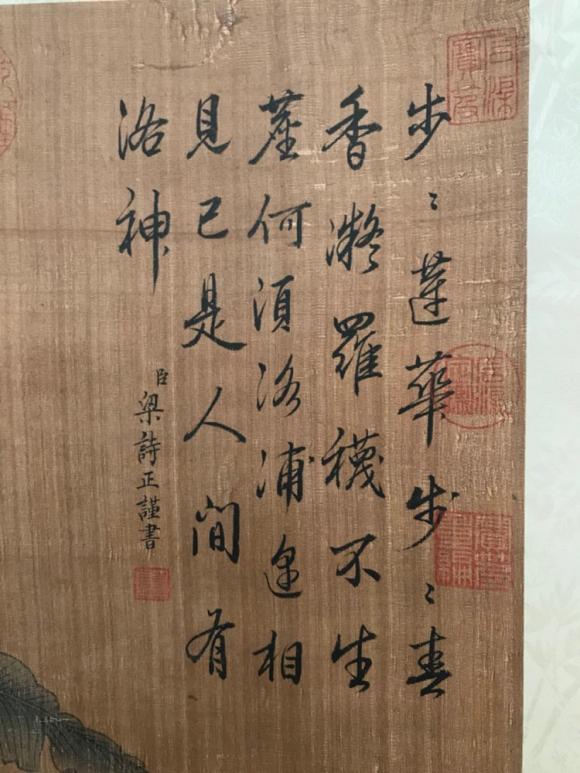 步〻蓮華步〻春
香凝羅襪不生
塵何須洛浦逢相
見已是人間有
洛神
臣梁詩正謹書